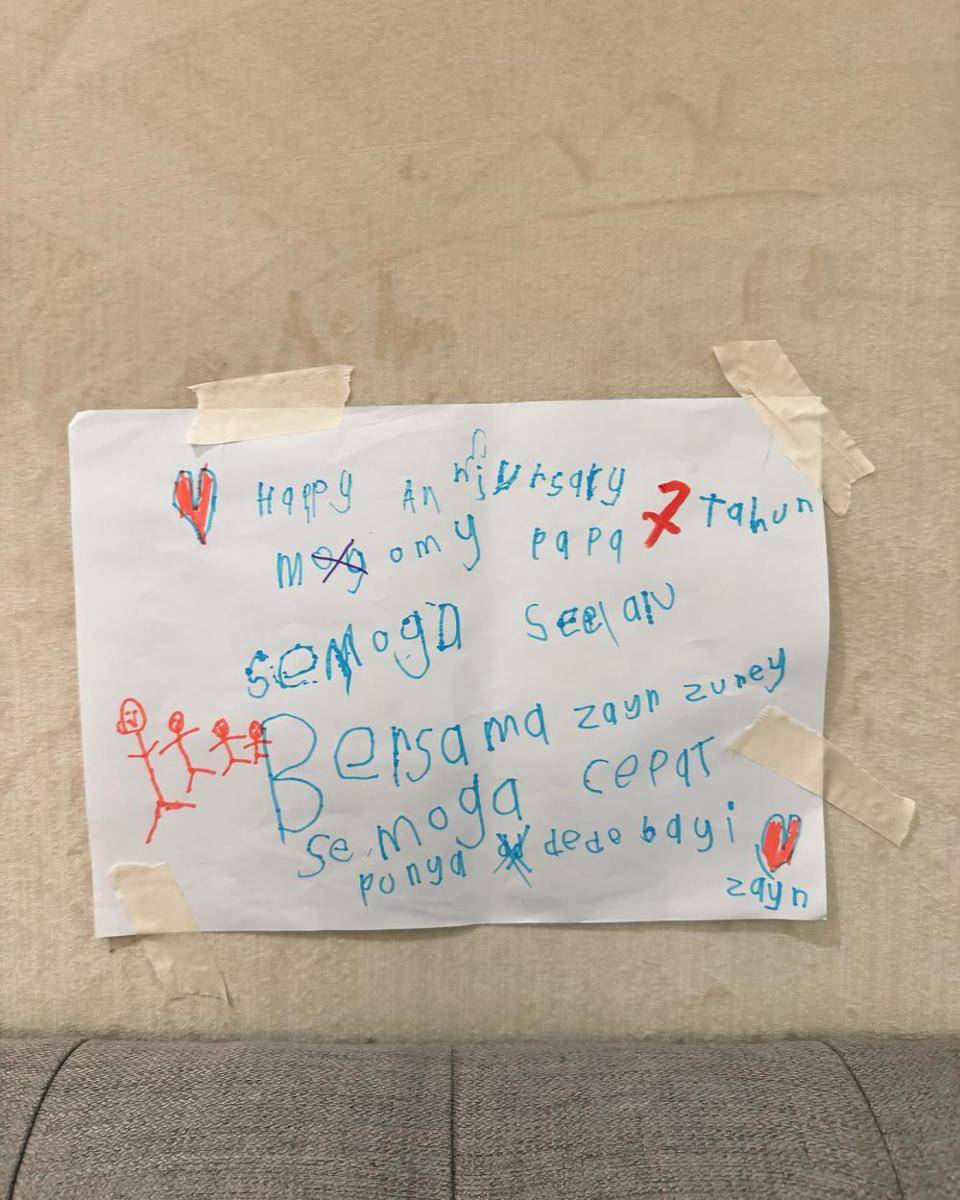 Happy Anniversary 7 Tahun
Momy papa
semoga Seelalu
Bersama zayn zuney
semoga cepat
punya dede bayi
zayn